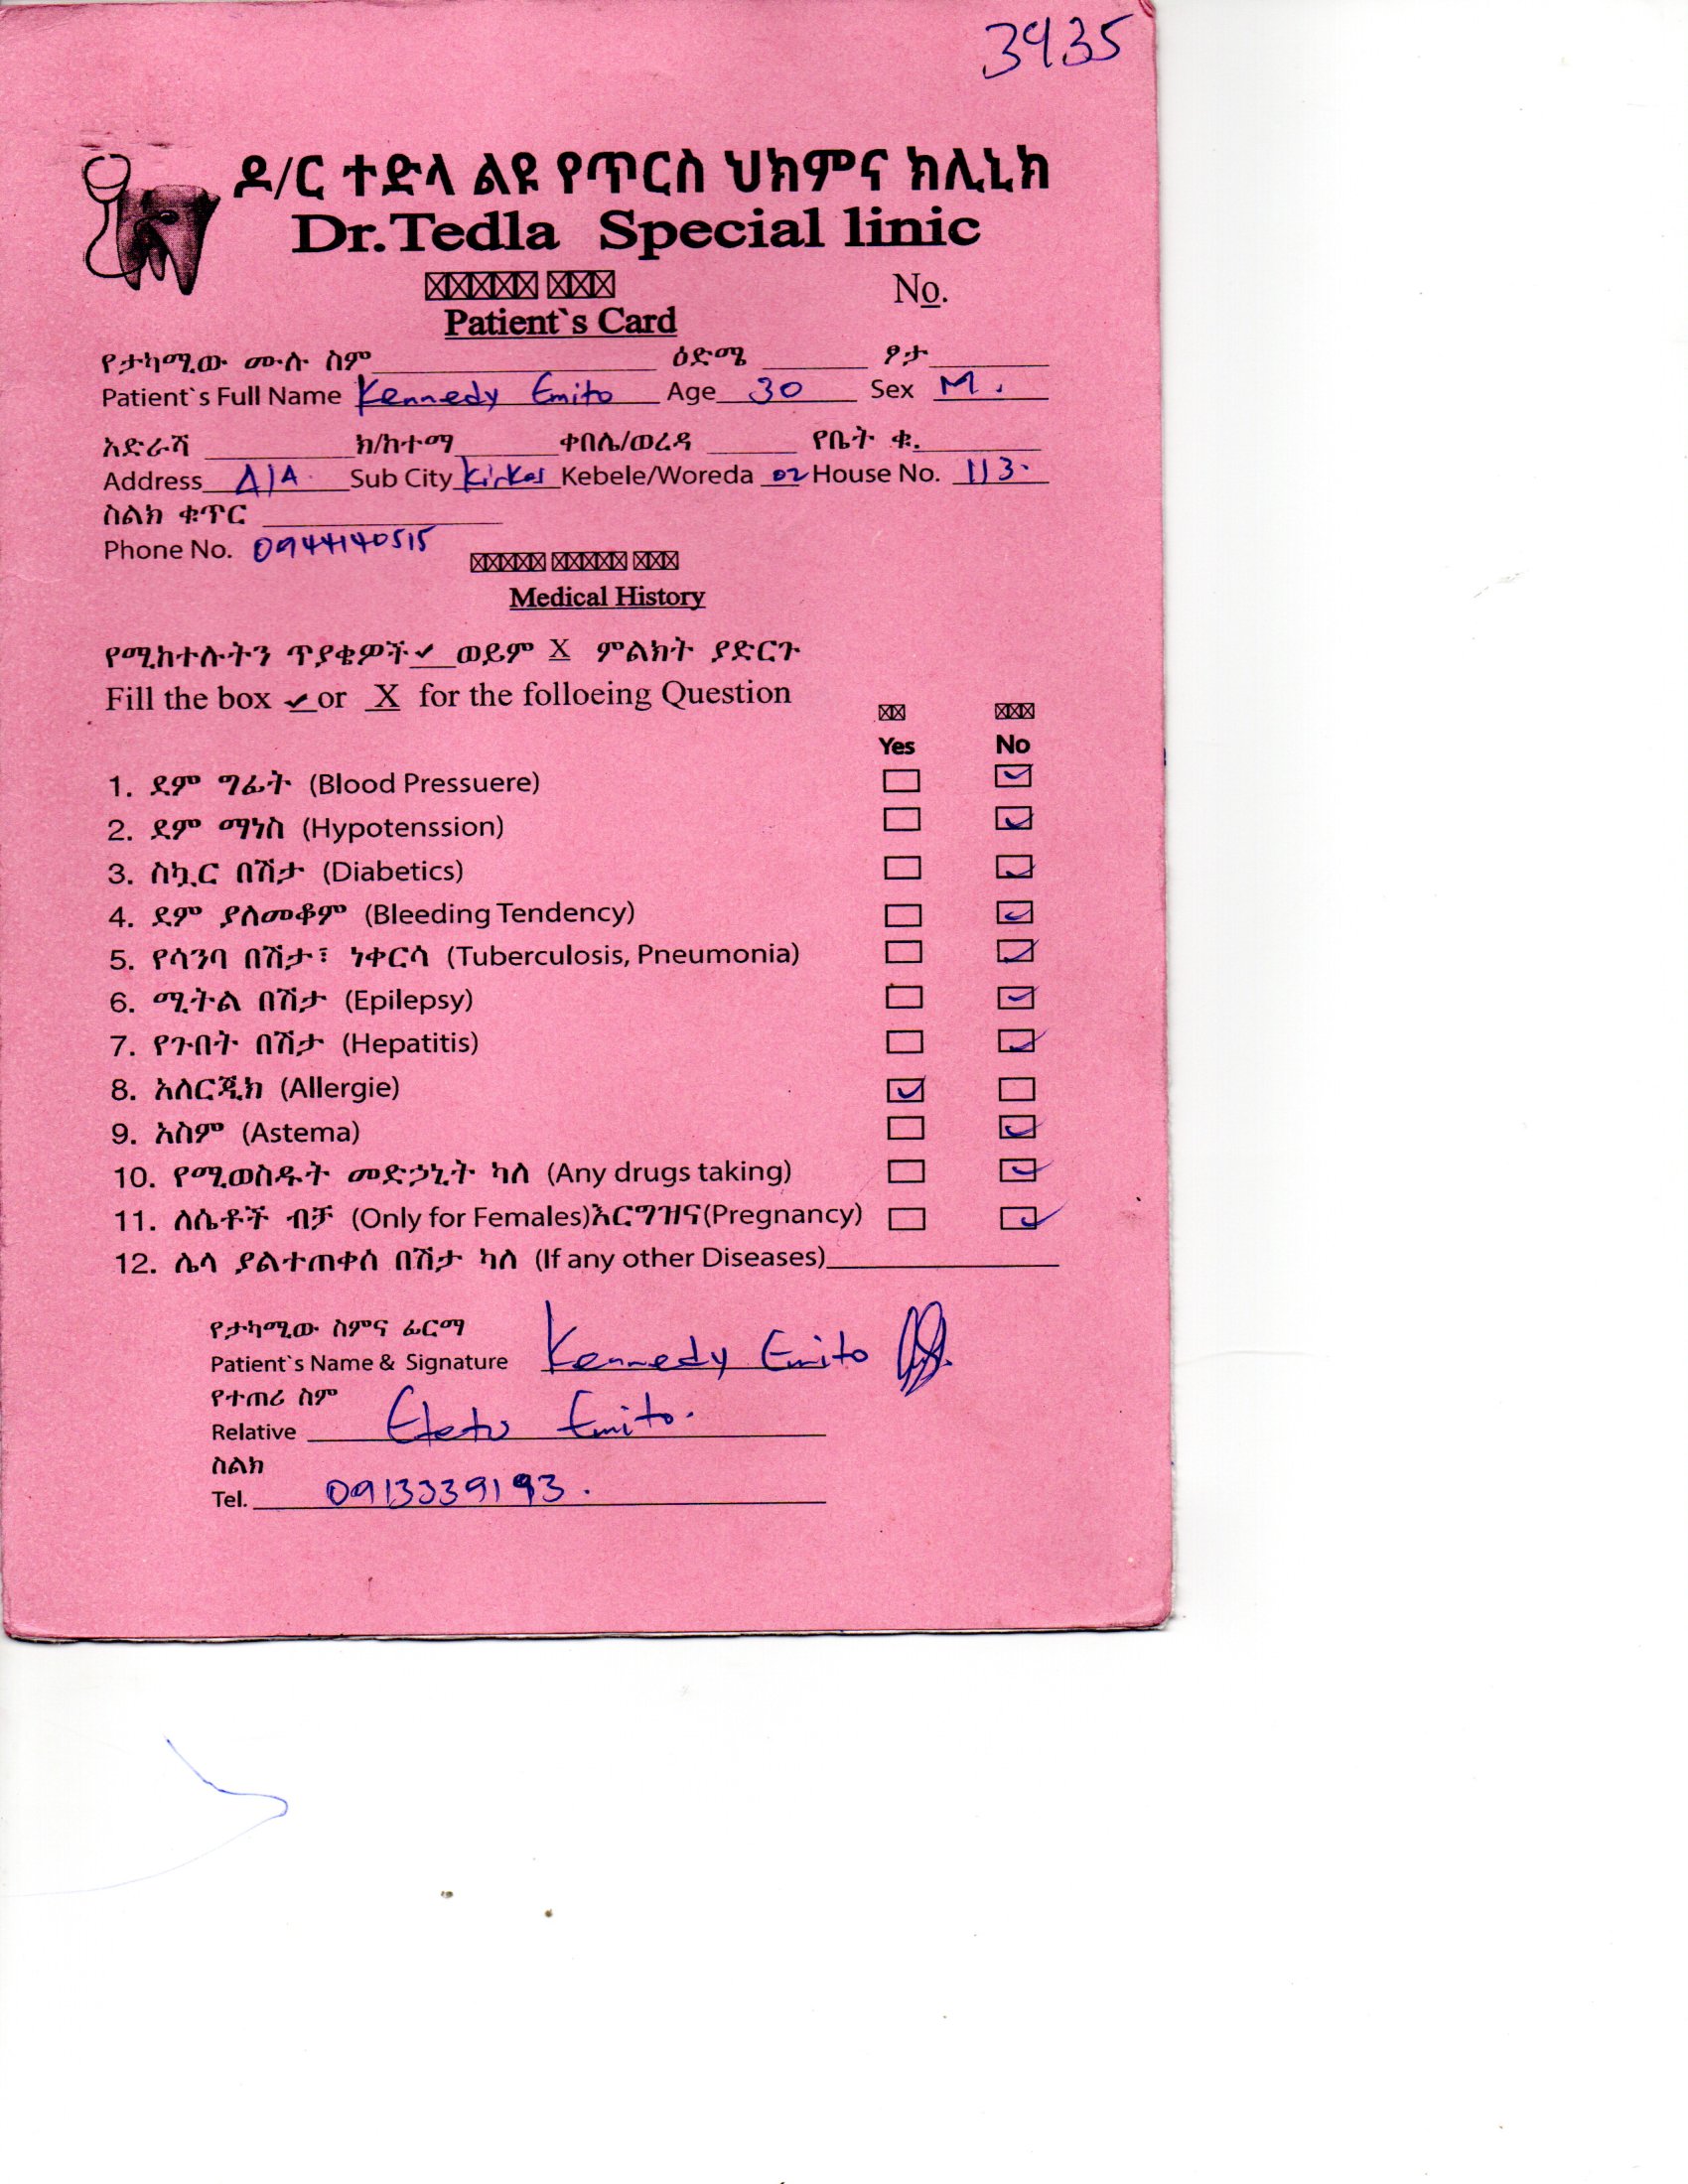 3935
ዶ/ር ተድላ ልዩ የጥርስ ህክምና ክሊኒክ
Dr.Tedla Special linic
No.
Patient`s Card
የታካሚው ሙሉ ስም ዕድሜ ፆታ
Patient`s Full Name Kennedy Emito Age 30 Sex M.
አድራሻ ክ/ከተማ ቀበሌ/ወረዳ የቤት ቁ.
Address A/A Sub City Kirkos Kebele/Woreda 02 House No. 113.
ስልክ ቁጥር
Phone No. 0944140515
Medical History
የሚከተሉትን ጥያቄዎች ✔ ወይም X ምልክት ያድርጉ
Fill the box ✔ or X for the folloeing Question
Yes No
1. ደም ግፊት (Blood Pressuere) ✓
2. ደም ማነስ (Hypotenssion) ✓
3. ስኳር በሽታ (Diabetics) ✓
4. ደም ያለመቆም (Bleeding Tendency) ✓
5. የሳንባ በሽታ፣ ነቀርሳ (Tuberculosis, Pneumonia) ✓
6. ሚትል በሽታ (Epilepsy) ✓
7. የጉበት በሽታ (Hepatitis) ✓
8. አለርጂክ (Allergie) ✓
9. አስም (Astema) ✓
10. የሚወስዱት መድኃኒት ካለ (Any drugs taking) ✓
11. ለሴቶች ብቻ (Only for Females)እርግዝና(Pregnancy) ✓
12. ሌላ ያልተጠቀሰ በሽታ ካለ (If any other Diseases)
የታካሚው ስምና ፊርማ
Patient`s Name & Signature Kennedy Emito
የተጠሪ ስም
Relative Emito.
ስልክ
Tel. 0913339193.